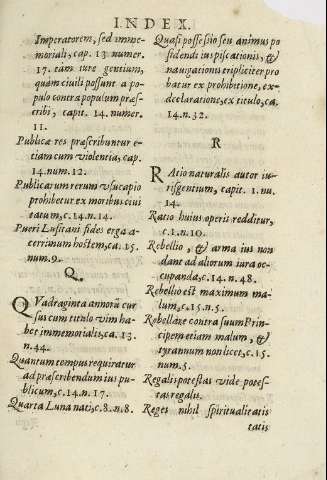 INDEX.
Imperatorem, sed imme-
moriali, cap. 13 numer.
17. tàm iure gentium,
quàm civili possunt a po-
pulo contra populum præs-
cribi, capit. 14. numer.
11.
Publicæ res præscribuntur e-
tiam cum violentia, cap.
14. num. 12.
Publicarum rerum usucapio
prohibetur ex moribus civi
tatum, c. 14. n. 14.
Pueri Lusitani fides erga a-
cerrimum hostem, ca. 15.
num. 9.
Q.
QVadraginta annorũ cur
sus cum titulo vim ha-
bet immemorialis, ca. 13.
n. 44.
Quantum tempus requiratur
ad præscribendum ius pu-
blicum, c. 14. n. 17.
Quarta Luna nati, c. 8. n. 8.
Quasi possessio seu animus po
sidendi ius piscationis, &
navigationis tripliciter pro
batur ex prohibitione, ex-
declaratione, ex titulo, ca.
14. n. 32.
R
RAtio naturalis autor iu-
ris gentium, capit. 1. nu.
14.
Ratio huius operis redditur,
c. 1. n. 10.
Rebellio, & arma ius non
dant ad aliorum iura oc-
cupanda, c. 14. n. 48.
Rebellio est maximum ma-
lum, c. 15. n. 5.
Rebellare contra suum Prin-
cipem etiam malum, &
tyrannum non licet, c. 15.
num. 5.
Regalis potestas vide potes-
tas regalis.
Reges nihil spiritualitatis
tatis